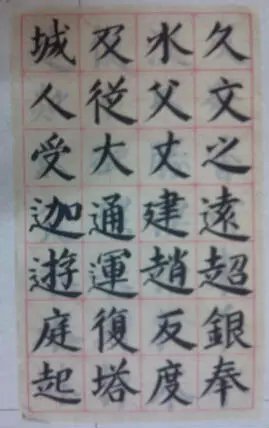 久文之遠超銀奉
水父丈建趙反度
及従大通運復塔
城人受迦遊庭起